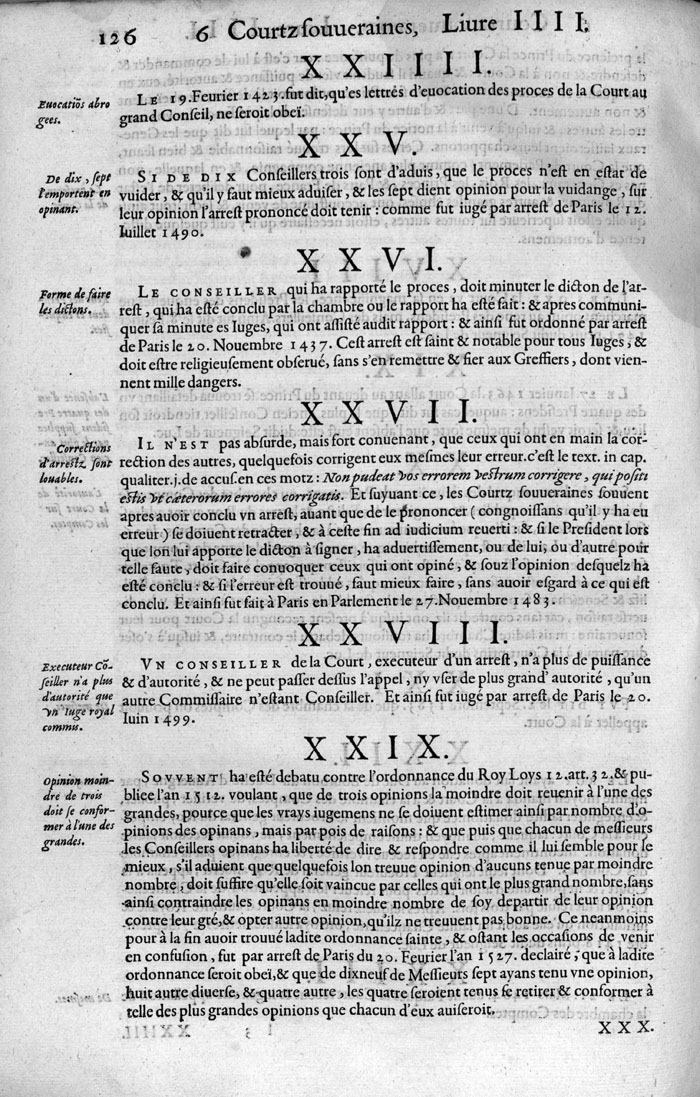 126 6 Courtz souueraines, Liure IIII.
XXIIII.
Euocatiõs abro
gees.
LE 19. Feurier 1423. fut dit, qu'es lettres d'euocation des proces de la Court au
grand Conseil, ne seroit obeï.
XXV.
De dix, sept
l'emportent en
opinant.
SI DE DIX Conseillers trois sont d'aduis, que le proces n'est en estat de
vuider, & qu'il y faut mieux aduiser, & les sept dient opinion pour la vuidange, sur
leur opinion l'arrest prononcé doit tenir: comme fut iugé par arrest de Paris le 12.
Iuillet 1490.
XXVI.
Forme de faire
les dictons.
LE CONSEILLER qui ha rapporté le proces, doit minuter le dicton de l'ar-
rest, qui ha esté conclu par la chambre ou le rapport ha esté fait: & apres communi-
quer sa minute es Iuges, qui ont assisté audit rapport: & ainsi fut ordonné par arrest
de Paris le 20. Nouembre 1437. Cest arrest est saint & notable pour tous Iuges, &
doit estre religieusement obserué, sans s'en remettre & fier aux Greffiers, dont vien-
nent mille dangers.
XXVII.
Corrections
d'arrestz sont
louables.
IL N'EST pas absurde, mais fort conuenant, que ceux qui ont en main la cor-
rection des autres, quelquefois corrigent eux mesmes leur erreur. c'est le text. in cap.
qualiter. j. de accus. en ces motz: Non pudeat vos errorem vestrum corrigere, qui positi
estis vt cæterorum errores corrigatis. Et suyuant ce, les Courtz souueraines souuent
apres auoir conclu vn arrest, auant que de le prononcer (congnoissans qu'il y ha eu
erreur) se doiuent retracter, & à ceste fin ad iudicium reuerti: & si le President lors
que lon lui apporte le dicton à signer, ha aduertissement, ou de lui, ou d'autre pour
telle faute, doit faire conuoquer ceux qui ont opiné, & souz l'opinion desquelz ha
esté conclu: & si l'erreur est trouué, faut mieux faire, sans auoir esgard à ce qui est
conclu. Et ainsi fut fait à Paris en Parlement le 27. Nouembre 1483.
XXVIII.
Executeur Cõ-
seiller n'a plus
d'autorité que
vn Iuge royal
commis.
VN CONSEILLER de la Court, executeur d'un arrest, n'a plus de puissance
& d'autorité, & ne peut passer dessus l'appel, ny vser de plus grand' autorité, qu'un
autre Commissaire n'estant Conseiller. Et ainsi fut iugé par arrest de Paris le 20.
Iuin 1499.
XXIX.
Opinion moin-
dre de trois
doit se confor-
mer à l'une des
grandes.
SOVVENT ha esté debatu contre l'ordonnance du Roy Loys 12. art. 32. & pu-
bliee l'an 1512. voulant, que de trois opinions la moindre doit reuenir à l'une des
grandes, pource que les vrays iugemens ne se doiuent estimer ainsi par nombre d'o-
pinions des opinans, mais par pois de raisons: & que puis que chacun de messieurs
les Conseillers opinans ha liberté de dire & respondre comme il lui semble pour le
mieux, s'il aduient que quelquefois lon treuue opinion d'aucuns tenue par moindre
nombre, doit suffire qu'elle soit vaincue par celles qui ont le plus grand nombre, sans
ainsi contraindre les opinans en moindre nombre de soy departir de leur opinion
contre leur gré, & opter autre opinion, qu'ilz ne treuuent pas bonne. Ce neanmoins
pour à la fin auoir trouué ladite ordonnance sainte, & ostant les occasions de venir
en confusion, fut par arrest de Paris du 20. Feurier l'an 1527. declairé, que à ladite
ordonnance seroit obeï, & que de dixneuf de Messieurs sept ayans tenu vne opinion,
huit autre diuerse, & quatre autre, les quatre seroient tenus se retirer & conformer à
telle des plus grandes opinions que chacun d'eux auiseroit.
XXX.